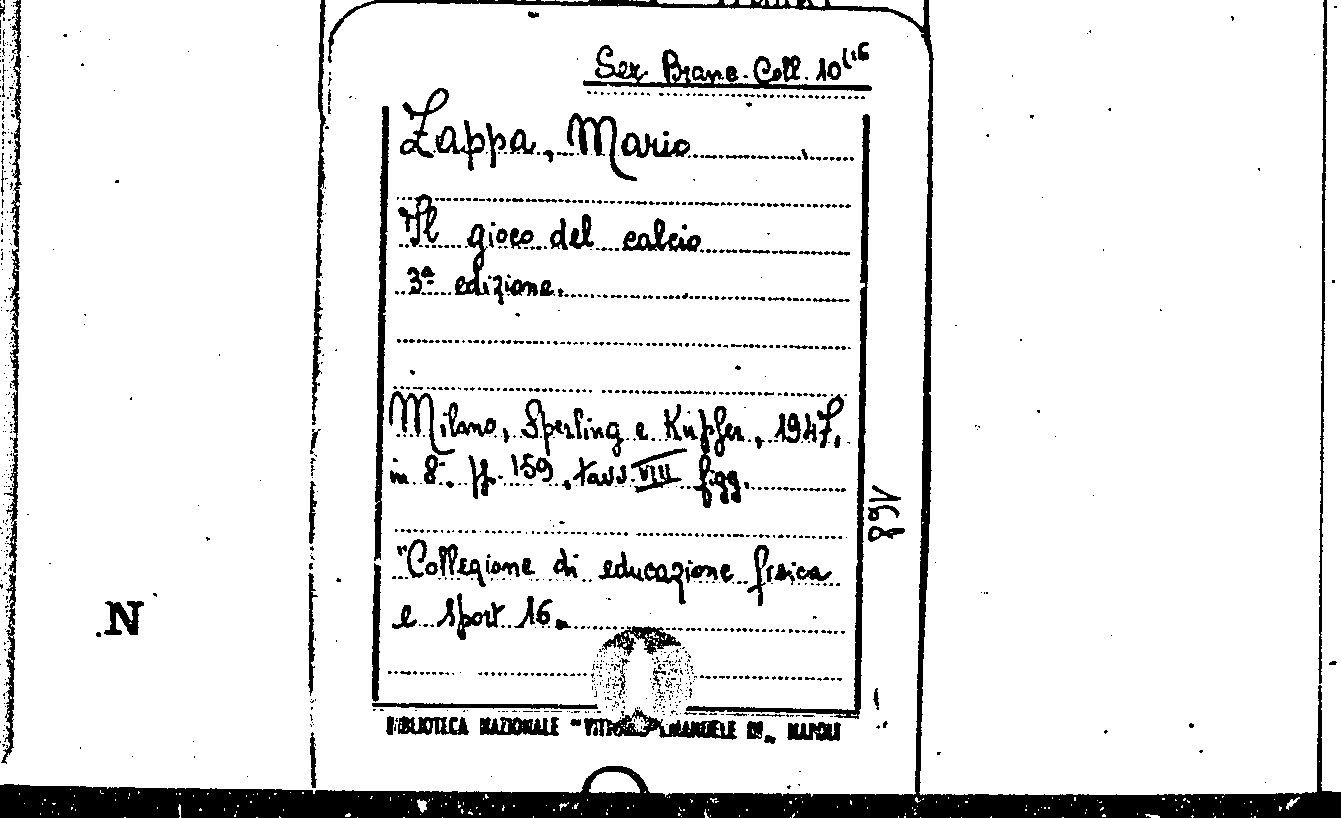 Sez Branc. Coll. 10 (16
Zappa, Mario
"Il gioco del calcio
3ª edizione.
Milano, Sperling e Kupfer, 1947.
in 8°. pp. 159, tavv. VIII figg.
168
"Collezione di educazione fisica
e sport 16.
N
BIBLIOTECA NAZIONALE "VITTORIO EMANUELE III„ NAPOLI